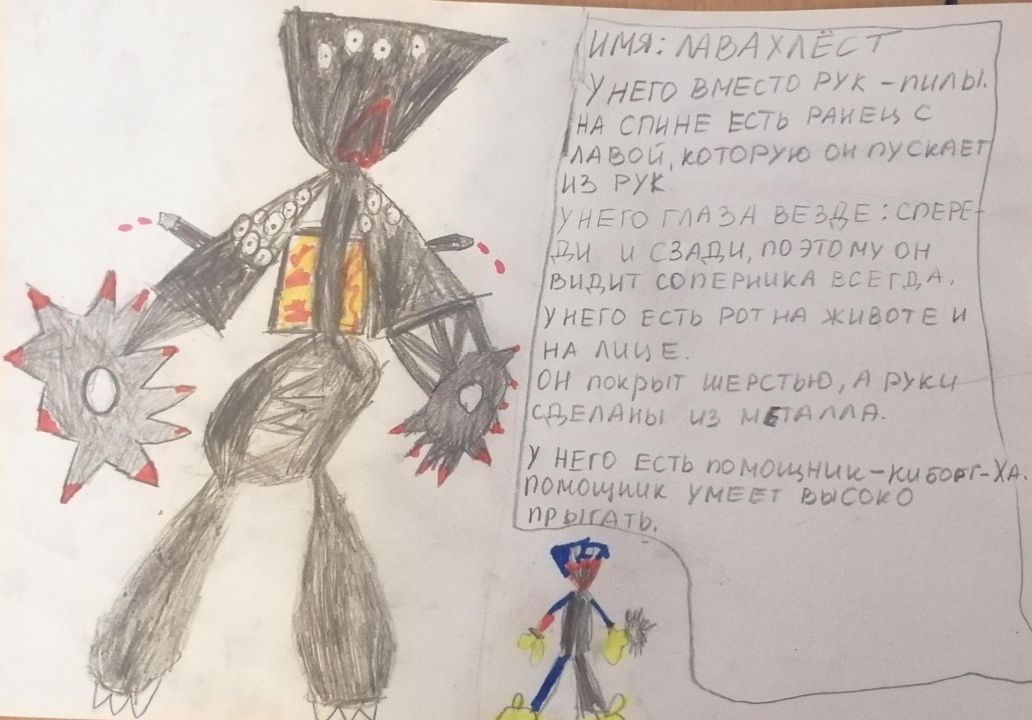 ИМЯ: ЛАВАХЛЁСТ
У НЕГО ВМЕСТО РУК - ПИЛЫ.
НА СПИНЕ ЕСТЬ РАНЕЦ С
ЛАВОЙ, КОТОРУЮ ОН ПУСКАЕТ
ИЗ РУК.
У НЕГО ГЛАЗА ВЕЗДЕ: СПЕРЕ-
ДИ И СЗАДИ, ПОЭТОМУ ОН
ВИДИТ СОПЕРНИКА ВСЕГДА.
У НЕГО ЕСТЬ РОТ НА ЖИВОТЕ И
НА ЛИЦЕ.
ОН ПОКРЫТ ШЕРСТЬЮ, А РУКИ
СДЕЛАНЫ ИЗ МЕТАЛЛА.
У НЕГО ЕСТЬ ПОМОЩНИК - КИБОРГ-ХА.
ПОМОЩНИК УМЕЕТ ВЫСОКО
ПРЫГАТЬ.